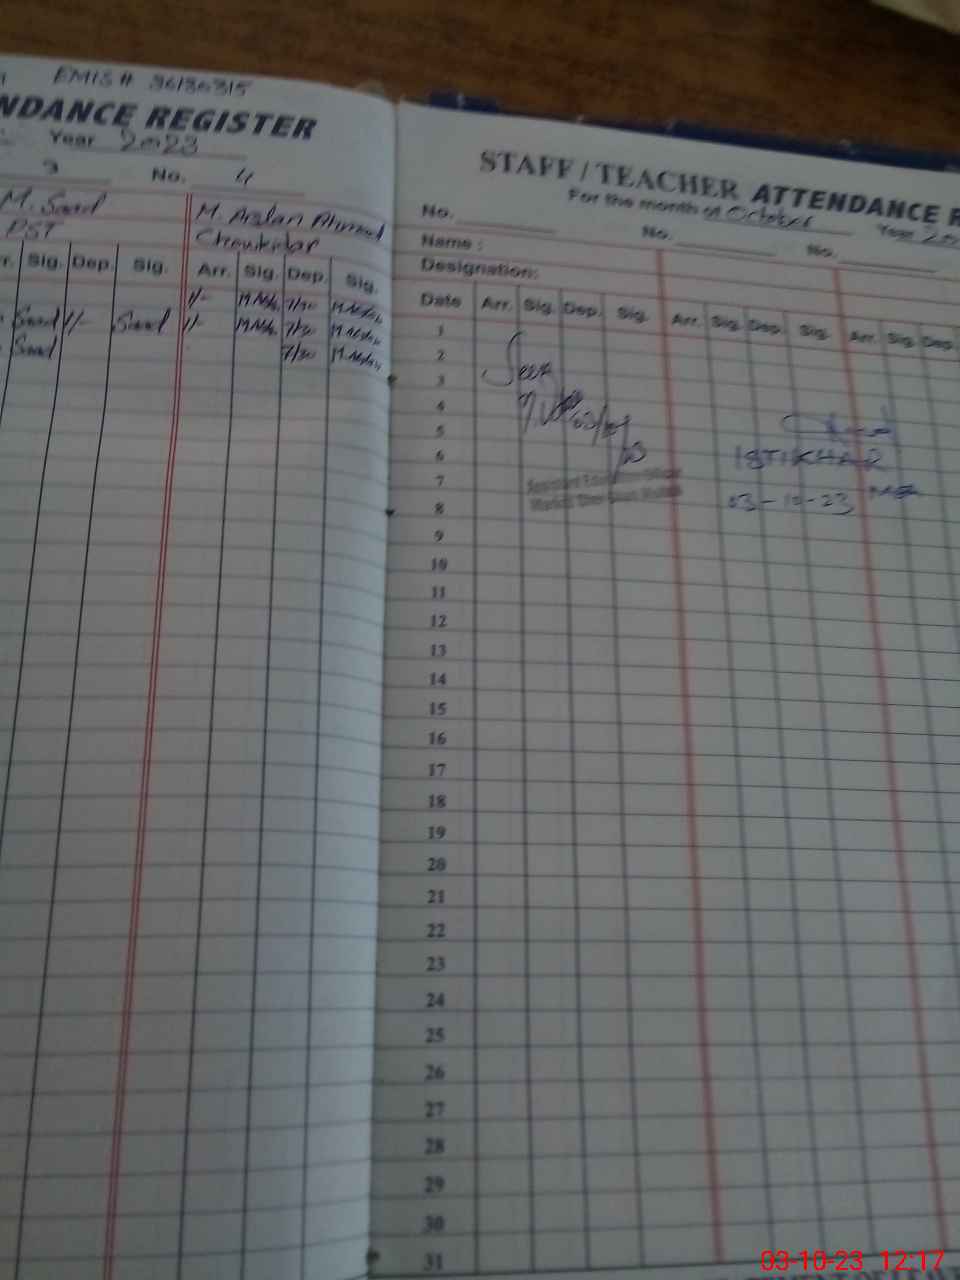 EMIS # 36130315
NDANCE REGISTER
Year 2023
3 No. 4
M. Saad M. Arslan Ahmad
PST Chowkidar
r. Sig. Dep. Sig. Arr. Sig. Dep. Sig.
1/- 7/30 M.Arslan
Saad 1/- Saad 1/- 7/30 M.Arslan
Saad 7/30 M.Arslan
STAFF / TEACHER ATTENDANCE R
For the month of October Year 20
No. No. No.
Name :
Designation:
Date Arr. Sig. Dep. Sig. Arr. Sig. Dep. Sig. Arr. Sig. Dep.
1
2
3
4
5
6
7
8
9
10
11
12
13
14
15
16
17
18
19
20
21
22
23
24
25
26
27
28
29
30
31
Seen
IGTIKHAR
03-10-23 MEA
Assistant Education Officer
03-10-23 12:17